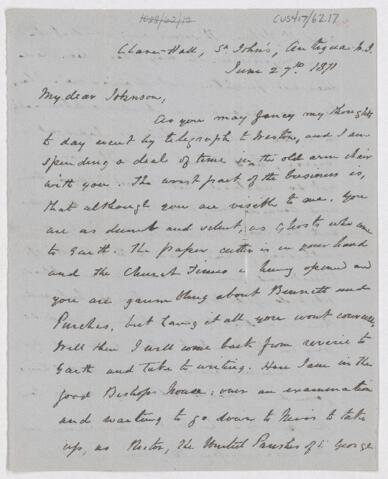 1088/62/12 CUS417/62.17
Clare-Hall, St John's, Antigua W.I.
June 27th 1871
My dear Johnson,
As you may fancy my thoughts
to day went by telegraph to Weston, and I am
spending a deal of time in the old arm chair
with you. The worst part of the business is,
that although you are visible to me, you
are as dumb and silent, as ghosts who come
to Earth. The paper cutter is in your hand
and the Church Times is being opened and
you are grumbling about Bennett and
Purchas, but hang it all you wont converse
Well then I will come back from reverie to
Earth and take to writing. Here I am in the
good Bishops house, over an examination
and waiting to go down to Nevis to take
up, as Rector, the United Parishes of St George